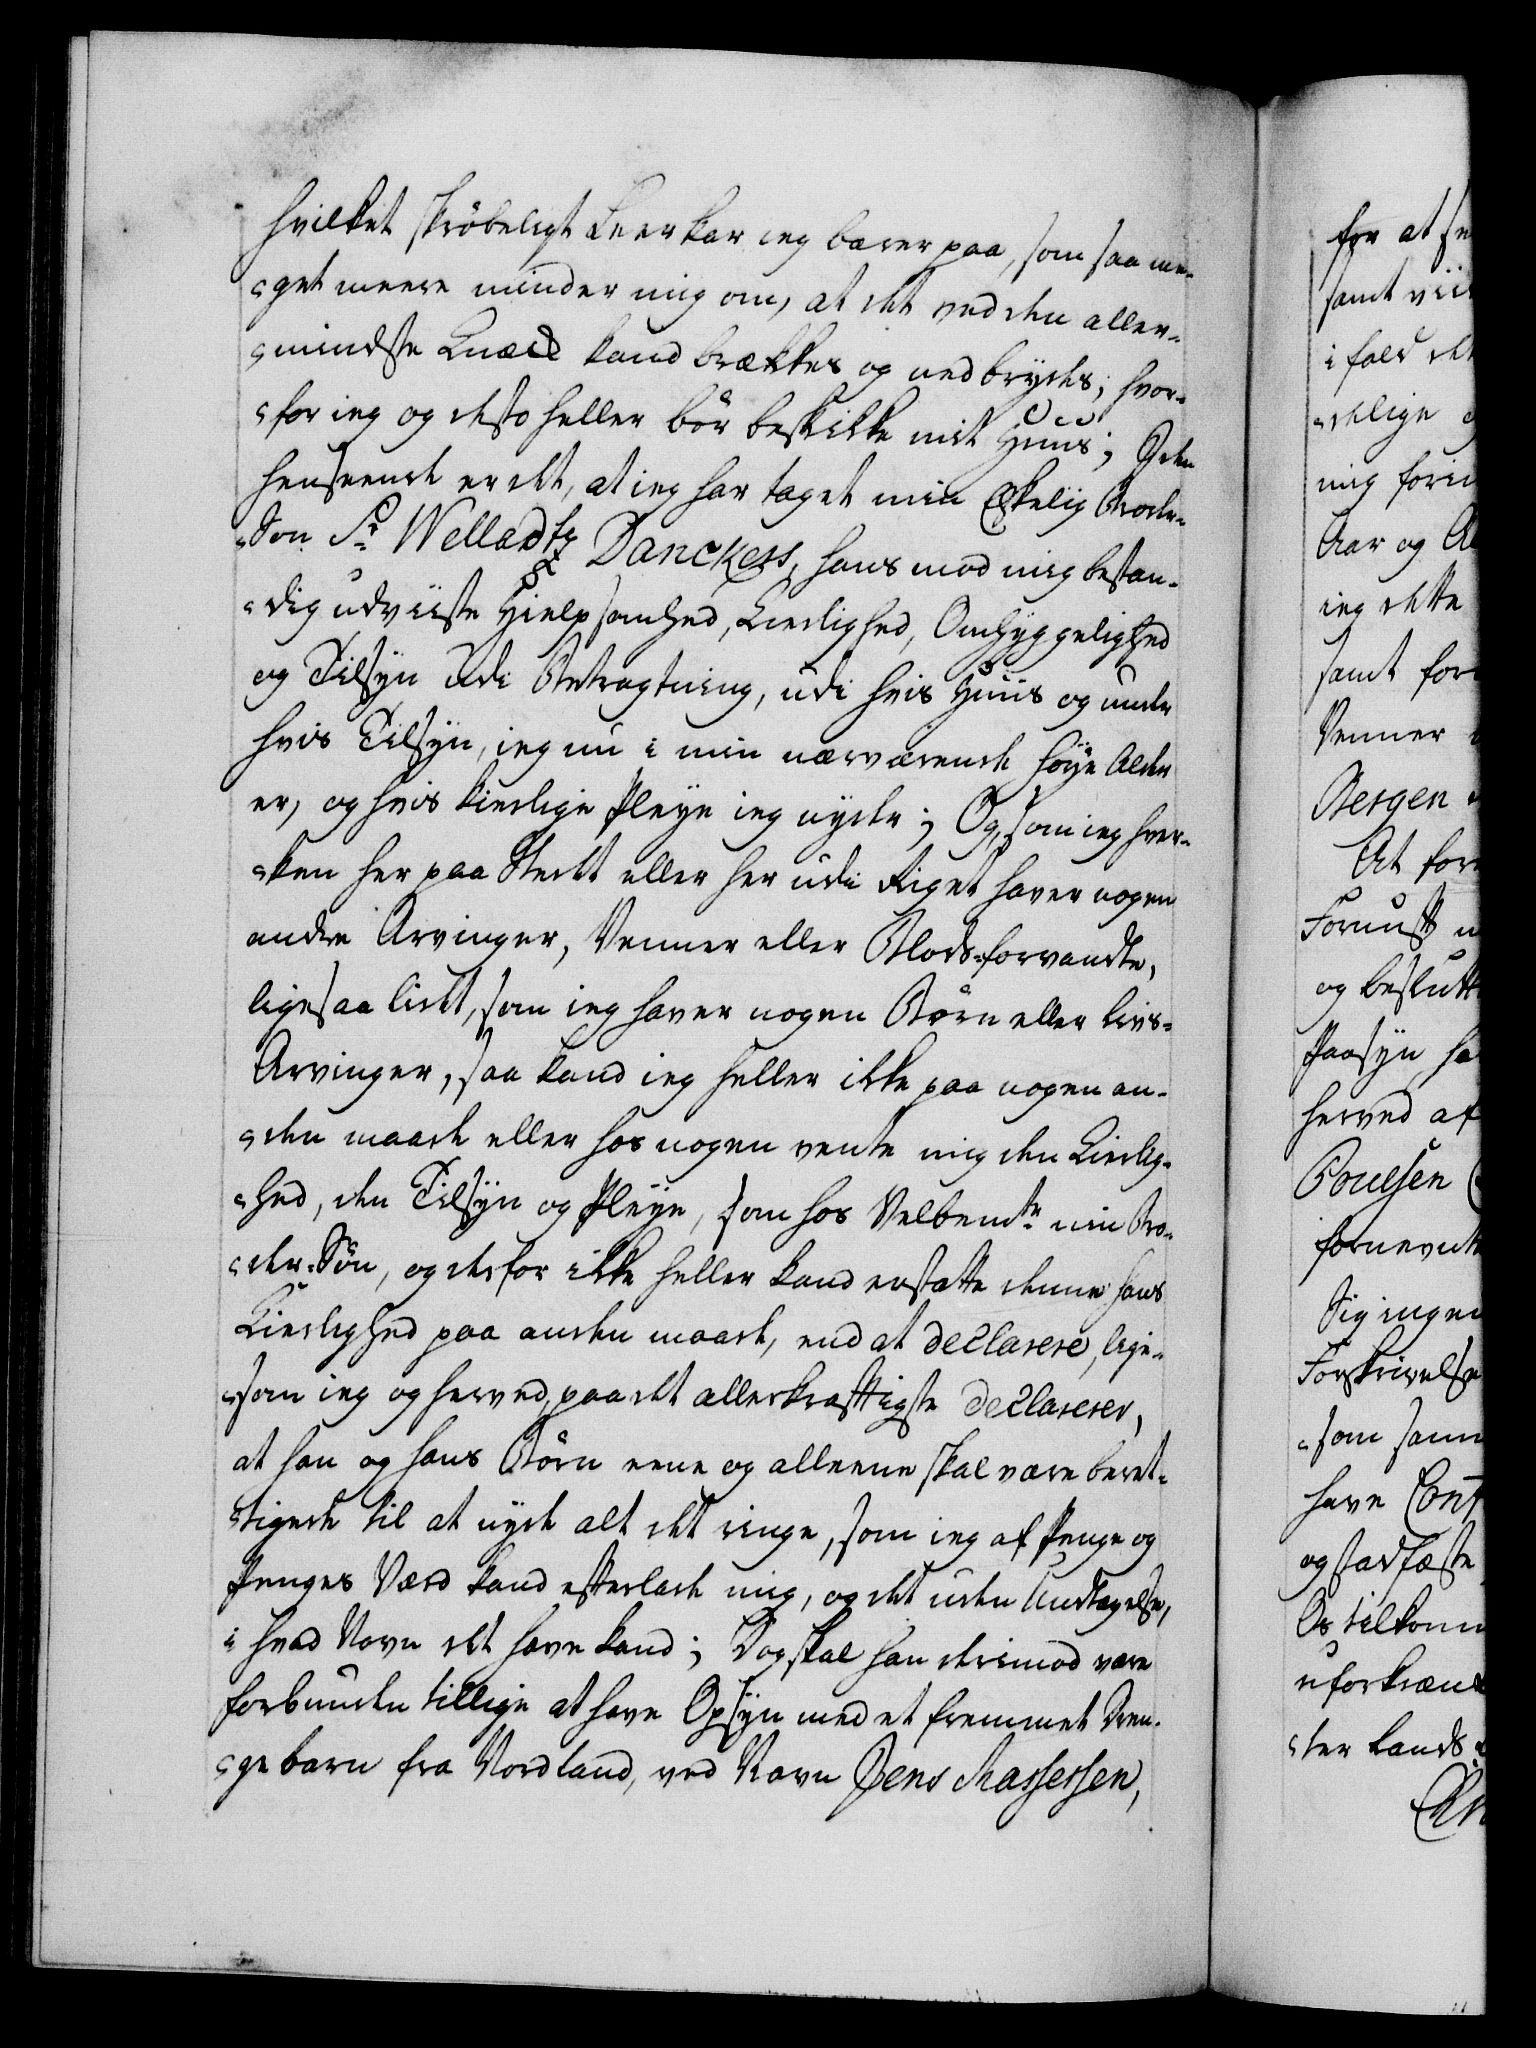 hvilket skröbeligt Leerkar jeg bærer paa, som saa me-
-get meere minder mig om, at det ved den aller-
-mindste Knæk kand brækkes og nedbrydes; hvor-
-for jeg og desto heller bör beskikke mit Huus; I den
henseende er det, at jeg har taget min Kiödelig Broder-
-Sön Sr. Welladtz Danckers, hans mod mig bestan-
-dig udviiste Hielpsomhed, Kierlighed, Omhyggelighed
og Tilsÿn udi Betragtning, udi hvis Huus og under
hvis Tilsÿn, jeg nu i min nærværende höye Alder
er, og hvis kierlige Pleye jeg nyder; Og, som jeg hver-
-ken her paa Stedet eller her udi Riget haver nogen
andre Arvinger, Venner eller Blods-forvandte,
ligesaa lidet, som jeg haver nogen Börn eller Livs-
Arvinger, saa kand jeg heller ikke paa nogen an-
-den maade eller hos nogen vente mig den Kierlig-
-hed, den Tilsÿn og Pleÿe, som hos Velbemte min Bro-
-der-Sön, og derfor ikke heller kand erstatte denne hans
Kierlighed paa anden maade, end at declarere, lige-
-som jeg og herved paa det allerkrafftigste declarerer,
at han og hans Börn eene og alleene skal være beret-
-tigede til at nyde alt det ringe, som jeg af Penge og
Penges Værd kand efterlade mig, og det uden Undtagelse,
i hvad Navn det have kand; Dog skal han derimod være
forbunden tillige at have Opsÿn med et fremmet Dren-
-gebarn fra Nordland, ved Navn Jens Massesen,
for at
samt
i fald
-delige
mig
Aar og
jeg dette
samt
Venner
Bergen
At
Fornuft
og beslutt
Paasÿn
herved af
Poulsen
fornevnt
Sig ingen
Forskrivelse
-som
have
og stadfæste
Os tilkom
uforkrænk
-ter Lands